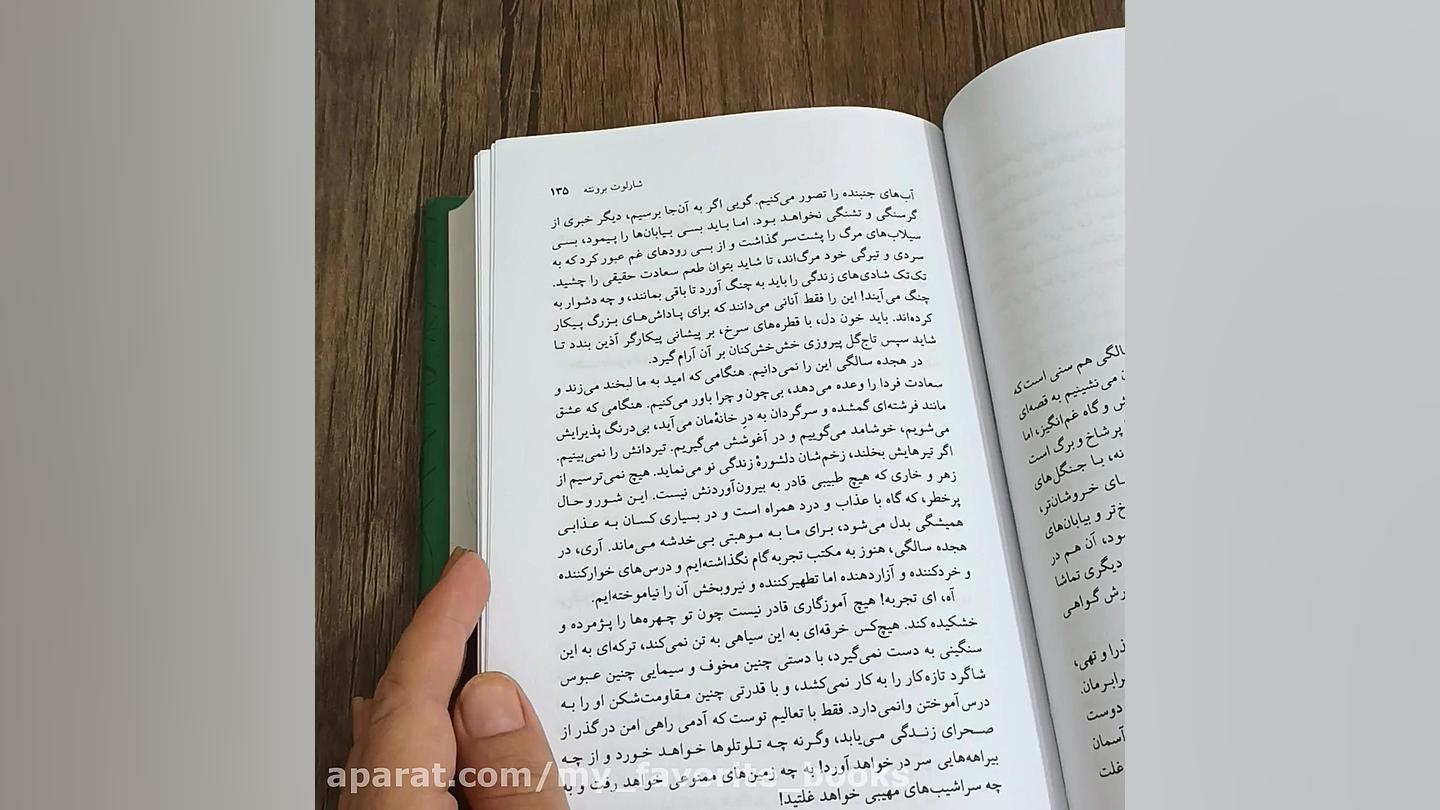 شارلوت برونته ۱۳۵
آب‌های جنبنده را تصور می‌کنیم. گویی اگر به آن‌جا برسیم، دیگر خبری از
گرسنگی و تشنگی نخواهد بود. اما باید بسی بیابان‌ها را پیمود، بسی
سیلاب‌های مرگ را پشت‌سر گذاشت و از بسی رودهای غم عبور کرد که به
سردی و تیرگی خود مرگ‌اند، تا شاید بتوان طعم سعادت حقیقی را چشید.
تک‌تک شادی‌های زندگی را باید به چنگ آورد تا باقی بمانند، و چه دشوار به
چنگ می‌آیند! این را فقط آنانی می‌دانند که برای پاداش‌های بزرگ پیکار
کرده‌اند. باید خون دل، با قطره‌های سرخ، بر پیشانی پیکارگر آذین بندد تا
شاید سپس تاج‌گل پیروزی خش‌خش‌کنان بر آن آرام گیرد.
در هجده سالگی این را نمی‌دانیم. هنگامی که امید به ما لبخند می‌زند و
سعادت فردا را وعده می‌دهد، بی‌چون و چرا باور می‌کنیم. هنگامی که عشق
مانند فرشته‌ای گمشده و سرگردان به درِ خانهٔ‌مان می‌آید، بی‌درنگ پذیرایش
می‌شویم، خوشامد می‌گوییم و در آغوشش می‌گیریم. تیردانش را نمی‌بینیم.
اگر تیرهایش بخلند، زخم‌شان دلشورهٔ زندگی نو می‌نماید. هیچ نمی‌ترسیم از
زهر و خاری که هیچ طبیبی قادر به بیرون‌آوردنش نیست. این شور و حال
پرخطر، که گاه با عذاب و درد همراه است و در بسیاری کسان به عذابی
همیشگی بدل می‌شود، برای ما به موهبتی بی‌خدشه می‌ماند. آری، در
هجده سالگی، هنوز به مکتب تجربه گام نگذاشته‌ایم و درس‌های خوارکننده
و خردکننده و آزاردهنده اما تطهیرکننده و نیروبخش آن را نیاموخته‌ایم.
آه، ای تجربه! هیچ آموزگاری قادر نیست چون تو چهره‌ها را پژمرده و
خشکیده کند. هیچ‌کس خرقه‌ای به این سیاهی به تن نمی‌کند، ترکه‌ای به این
سنگینی به دست نمی‌گیرد، با دستی چنین مخوف و سیمایی چنین عبوس
شاگرد تازه‌کار را به کار نمی‌کشد، و با قدرتی چنین مقاومت‌شکن او را به
درس‌آموختن وانمی‌دارد. فقط با تعالیم توست که آدمی راهی امن در گذر از
صحرای زندگی می‌یابد، وگرنه چه تلوتلوها خواهد خورد و از چه
بیراهه‌هایی سر در خواهد آورد! به چه زمین‌های ممنوعی خواهد رفت و به
چه سراشیب‌های مهیبی خواهد غلتید!
سالگی هم سنی است که
می‌نشینیم به قصه‌ای
و گاه غم‌انگیز، اما
پرشاخ و برگ است
با جنگل‌های
خروشان‌تر،
و بیابان‌های
آن هم در
دیگری تماشا
گواهی
و تهی،
برابرمان.
دوست
آسمان
غلت
aparat.com/my_favorite_books